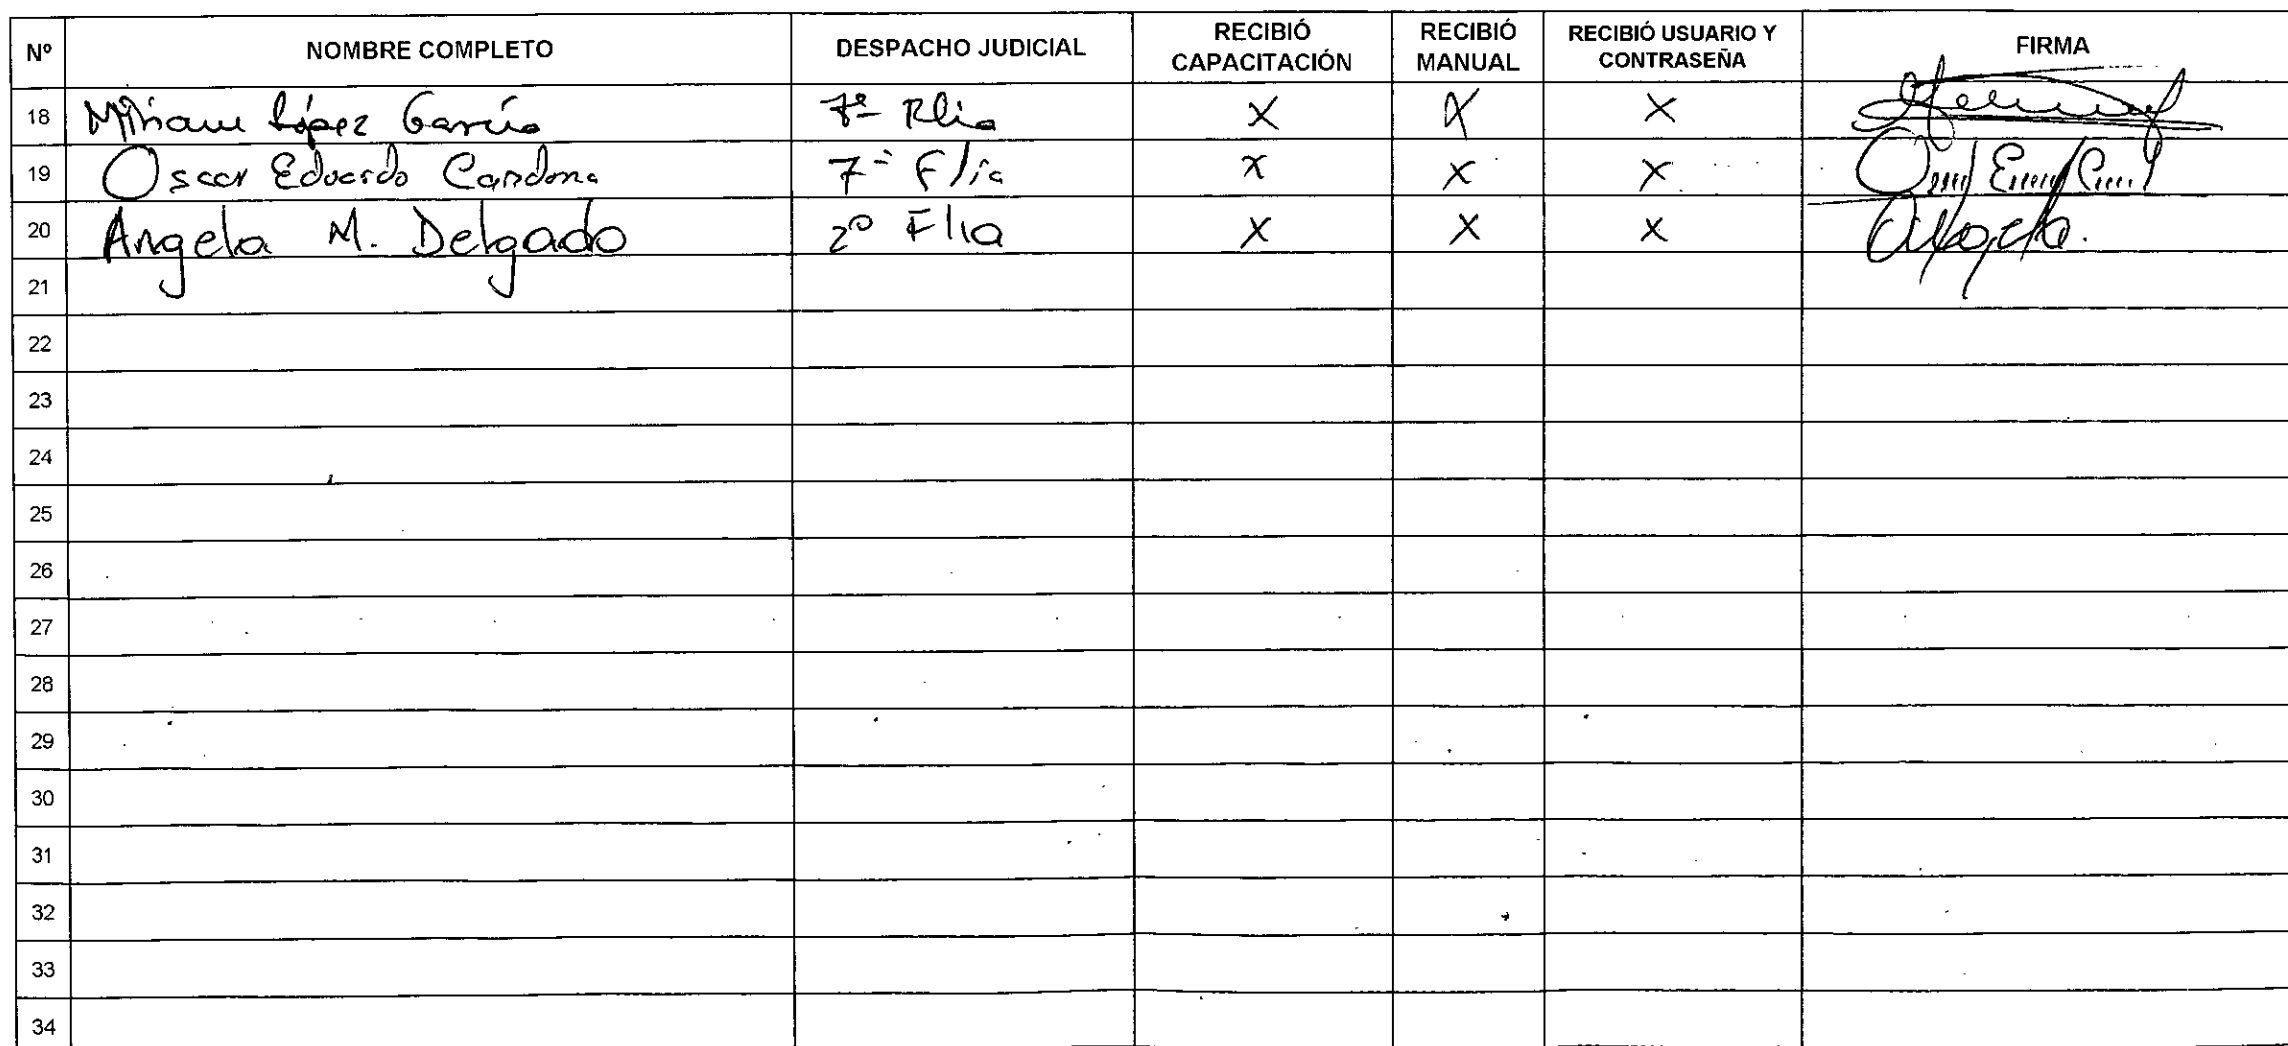 Nº NOMBRE COMPLETO DESPACHO JUDICIAL RECIBIÓ CAPACITACIÓN RECIBIÓ MANUAL RECIBIÓ USUARIO Y CONTRASEÑA FIRMA
18 Miriam López García 7º Flia X X X
19 Oscar Eduardo Cardona 7º Flia X X X
20 Angela M. Delgado 2º Flia X X X
21
22
23
24
25
26
27
28
29
30
31
32
33
34